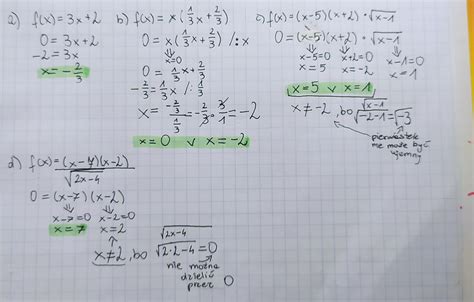 a) f(x) = 3x+2
0 = 3x+2
-2 = 3x
x = -2/3
b) f(x) = x(1/3x + 2/3)
0 = x(1/3x + 2/3) /:x
⇓
x=0
0 = 1/3x + 2/3
-2/3 = 1/3x /: 1/3
x = (-2/3)/(1/3) = -2/3 · 3/1 = -2
x=0 ∨ x=-2
c) f(x) = (x-5)(x+2) · √x-1
0 = (x-5)(x+2) · √x-1
⇓ ⇓ ⇓
x-5=0 x+2=0 x-1=0
x=5 x=-2 x=1
x=5 ∨ x=1
x≠-2, bo √x-1
√-2-1 = √-3
pierwiastek
nie może być
ujemny
d) f(x) = (x-7)(x-2)
√2x-4
0 = (x-7)(x-2)
⇓ ⇓
x-7=0 x-2=0
x=7 x=2
↑
x≠2, bo
√2x-4
√2·2-4 = 0
nie można
dzielić
przez 0